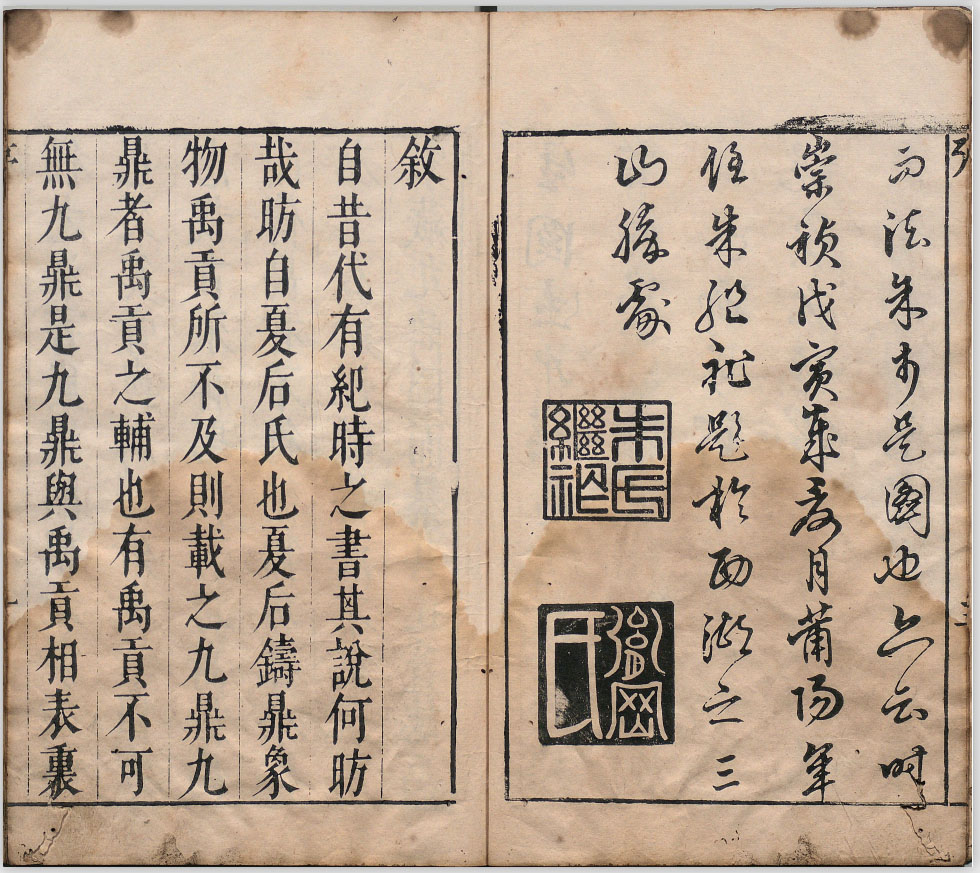 引
而法是圖也亦云時
崇禎戊寅歲夏月莆陽年
侄朱繼祚題於西湖之三
山勝處
朱氏繼祚
胤岡氏
敘
自昔代有紀時之書其說何昉
哉昉自夏后氏也夏后鑄鼎象
物禹貢所不及則載之九鼎九
鼎者禹貢之輔也有禹貢不可
無九鼎是九鼎與禹貢相表裏